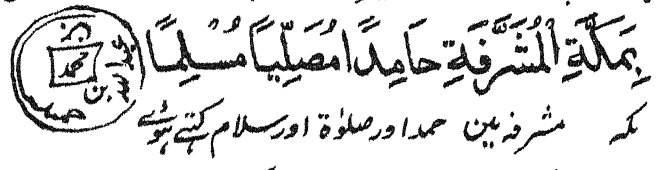 بِمَكَّةِ الْمُشَرَّفَةِ حَامِدًا مُصَلِّيًا مُسْلِمًا
مکہ مشرفہ میں حمد اور صلوٰة اور سلام کہتے ہوئے
محمد
بن